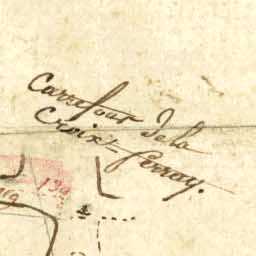 Carrefour De la
Croix=Perroy.
130